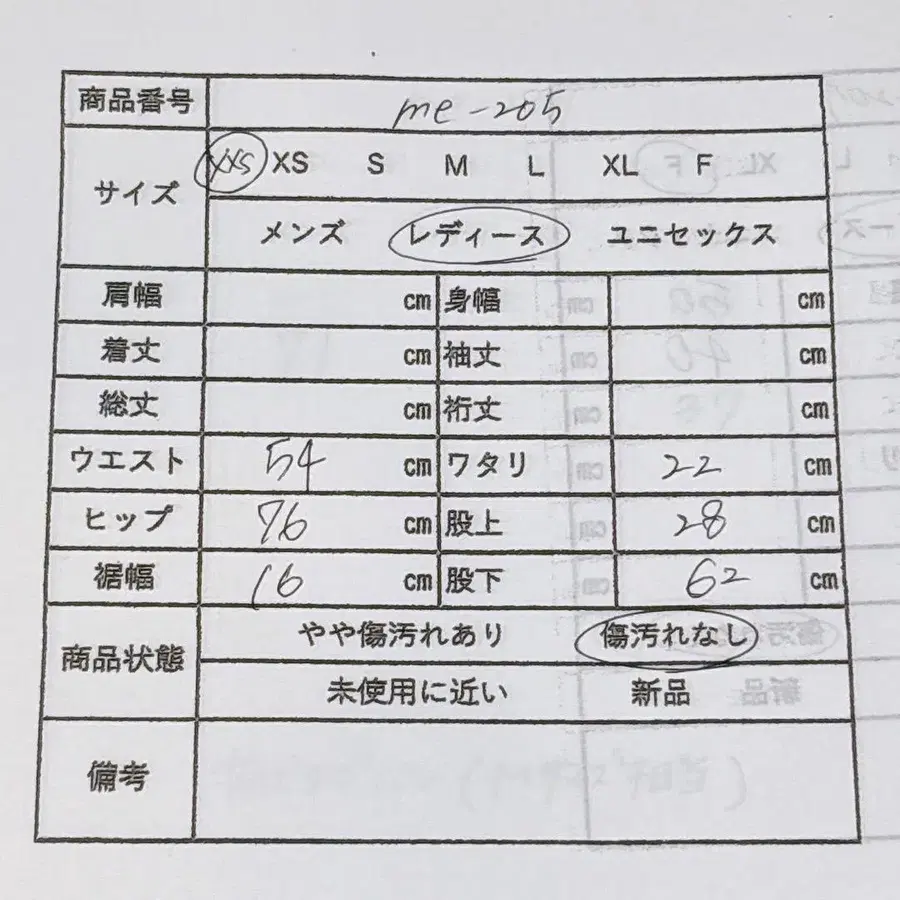 商品番号 me-205
サイズ XXS XS S M L XL F
メンズ レディース ユニセックス
肩幅 cm 身幅 cm
着丈 cm 袖丈 cm
総丈 cm 裄丈 cm
ウエスト 54 cm ワタリ 22 cm
ヒップ 76 cm 股上 28 cm
裾幅 16 cm 股下 62 cm
商品状態 やや傷汚れあり 傷汚れなし
未使用に近い 新品
備考